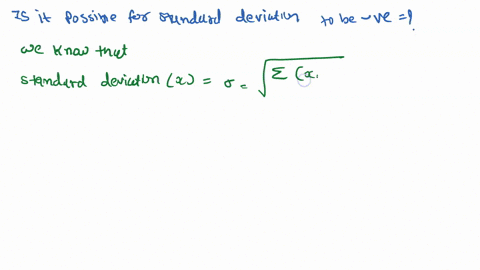 Is it possible for standard deviation to be -ve =?
we know that
standard deviation (x) = σ = √Σ (x.